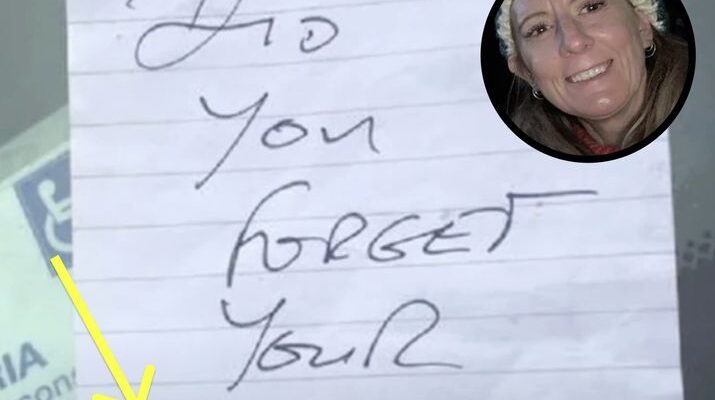 Did
You
FORGET
YouR
RIA